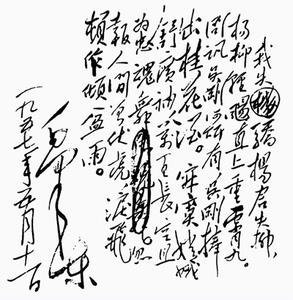 我失驕楊君失柳，
楊柳輕颺直上重霄九。
问訊吴剛何所有，吴剛捧
出桂花酒。寂寞嫦娥
舒廣袖，萬里長空且
為忠魂舞。忽
報人間曾伏虎，淚飛
頓作傾盆雨。
毛澤東
一九五七年五月十一日